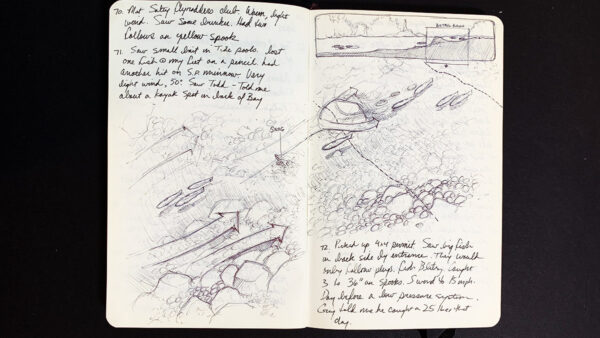 70. Met Salty Flyrodders club. Warm, light
wind. Saw some bunker. Had two
follows on yellow spook
71. Saw small bait in Tide pools. lost
one fish @ my feet on a pencil had
another hit on S.P. minnow. Very
light wind, 50° Saw Todd - Told me
about a kayak spot in back of Bay
SNAG
DETAIL BELOW
72. Picked up 4x4 permit. Saw big fish
in back side by entrance. They would
only follow plugs. caught
3 to 36" on spooks. S wind 10 15 mph.
Day before a low pressure system.
Guy told me he caught a 25 lber that
day.